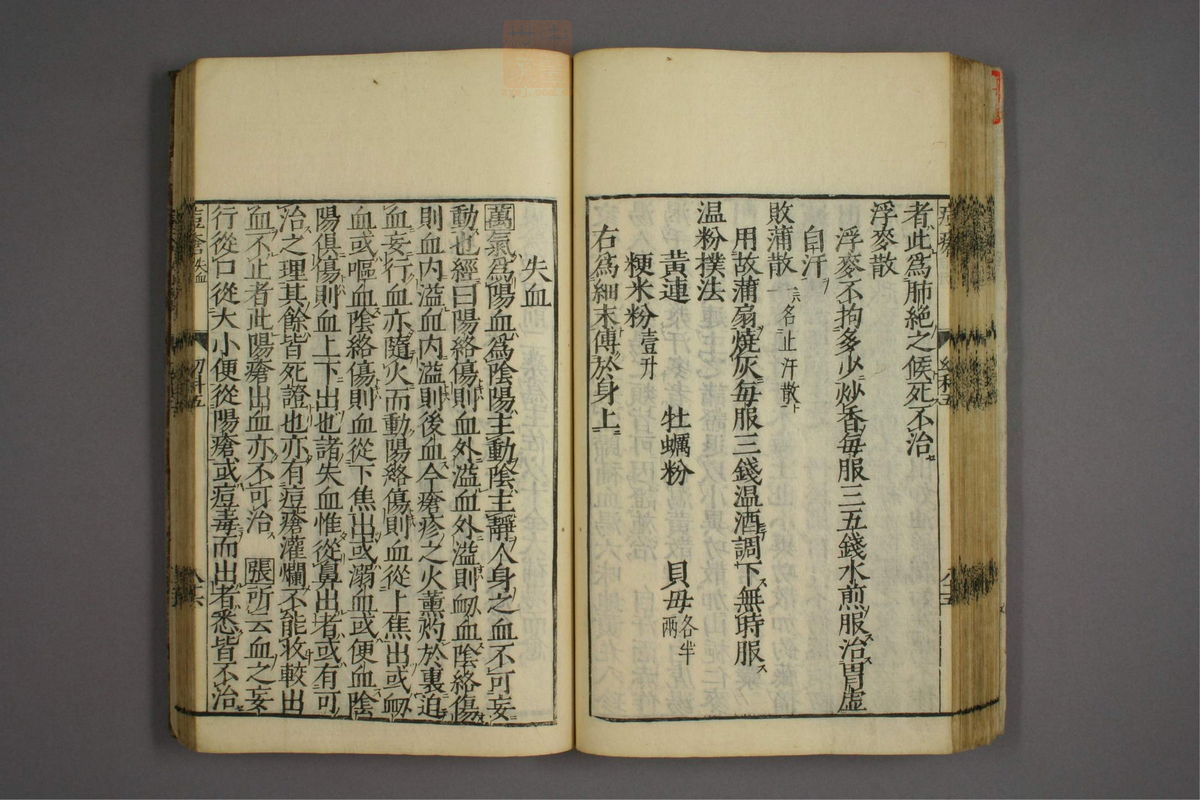 者此爲肺絶之候死不治
浮麥散
浮麥不拘多少炒香每服三五錢水煎服治胃虛
自汗
敗蒲散一名止汗散
用故蒲扇燒灰每服三錢温酒調下無時服
温粉撲法
黄連　牡蠣粉　貝母各半兩
粳米粉壹升
右爲細末傅於身上
失血
萬氣爲陽血爲陰陽主動陰主靜人身之血不可妄
動也經曰陽絡傷則血外溢血外溢則衂血陰絡傷
則血内溢血内溢則後血今瘡疹之火薰灼於裏迫
血妄行血亦隨火而動陽絡傷則血從上焦出或衂
血或嘔血陰絡傷則血從下焦出或溺血或便血陰
陽俱傷則血上下出也諸失血惟從鼻出者或有可
治之理其餘皆死證也亦有痘瘡灌爛不能收較出
血不止者此陽瘡出血亦不可治　張所云血之妄
行從口從大小便從陽瘡或痘毒而出者悉皆不治
痘瘡　失血
幼科五